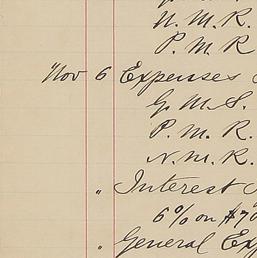 N. M. R.
P. M. R
Nov 6 Expenses
G. M. S.
P. M. R.
N. M. R.
" Interest
6% on $70
" General Exp